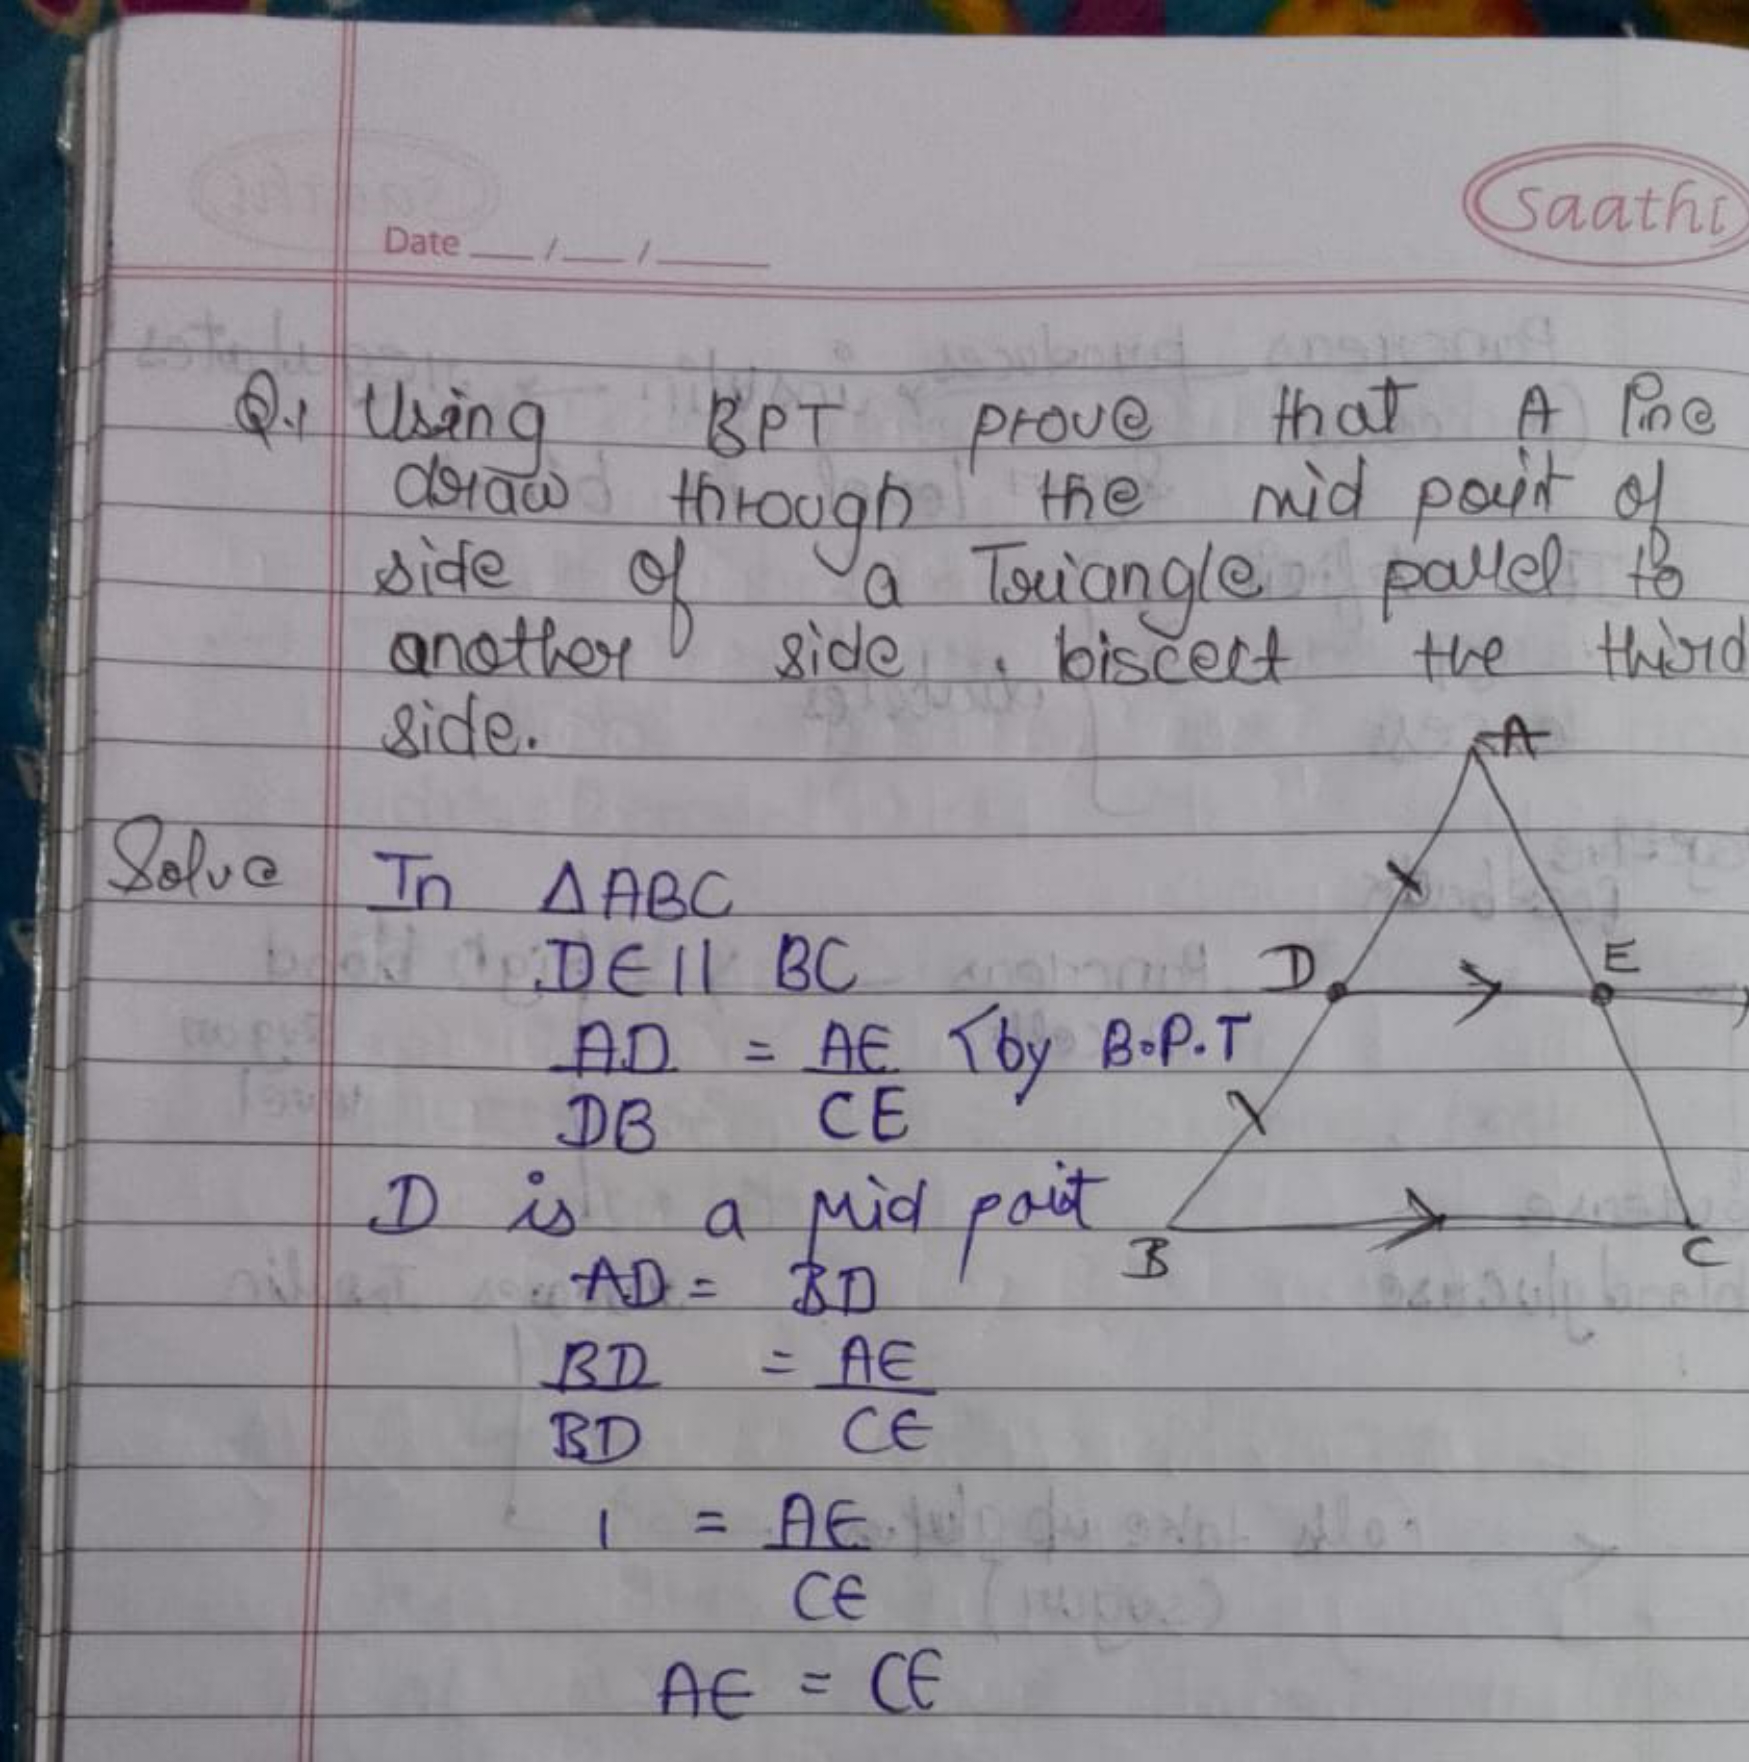 saathi
Date __/__/____
Q.1 Using BPT prove that A line
draw through the mid point of
side of a Triangle parlel to
another side . biscect the third
side.
A
Solve In ΔABC
DE || BC
D E
AD = AE (by B.P.T
DB CE
D is a Mid poit
B C
AD = BD
BD = AE
BD CE
1 = AE
CE
AE = CE